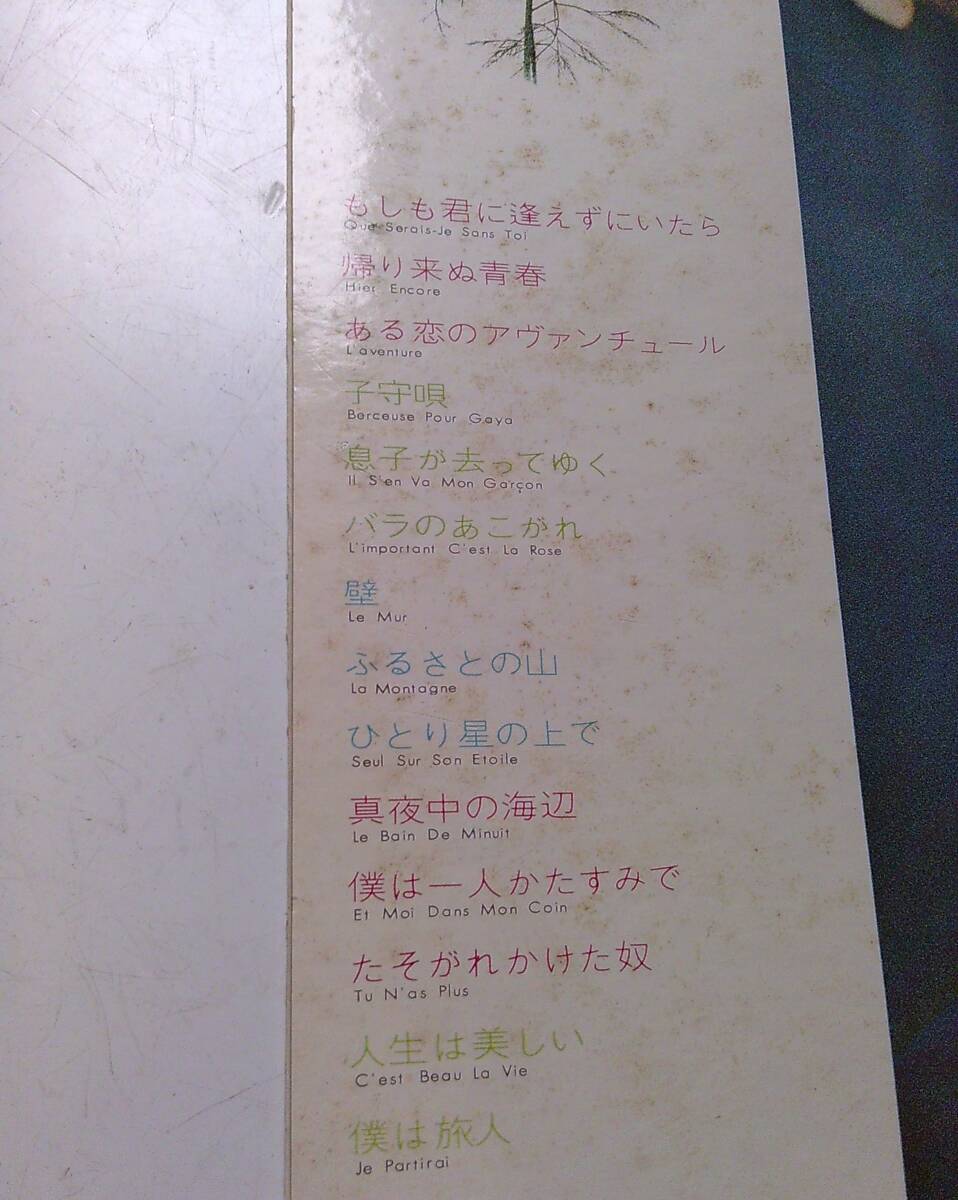 もしも君に逢えずにいたら
Que Serais-Je Sans Toi
帰り来ぬ青春
Hier Encore
ある恋のアヴァンチュール
L'aventure
子守唄
Berceuse Pour Gaya
息子が去ってゆく
Il S'en Va Mon Garçon
バラのあこがれ
L'important C'est La Rose
壁
Le Mur
ふるさとの山
La Montagne
ひとり星の上で
Seul Sur Son Etoile
真夜中の海辺
Le Bain De Minuit
僕は一人かたすみで
Et Moi Dans Mon Coin
たそがれかけた奴
Tu N'as Plus
人生は美しい
C'est Beau La Vie
僕は旅人
Je Partirai